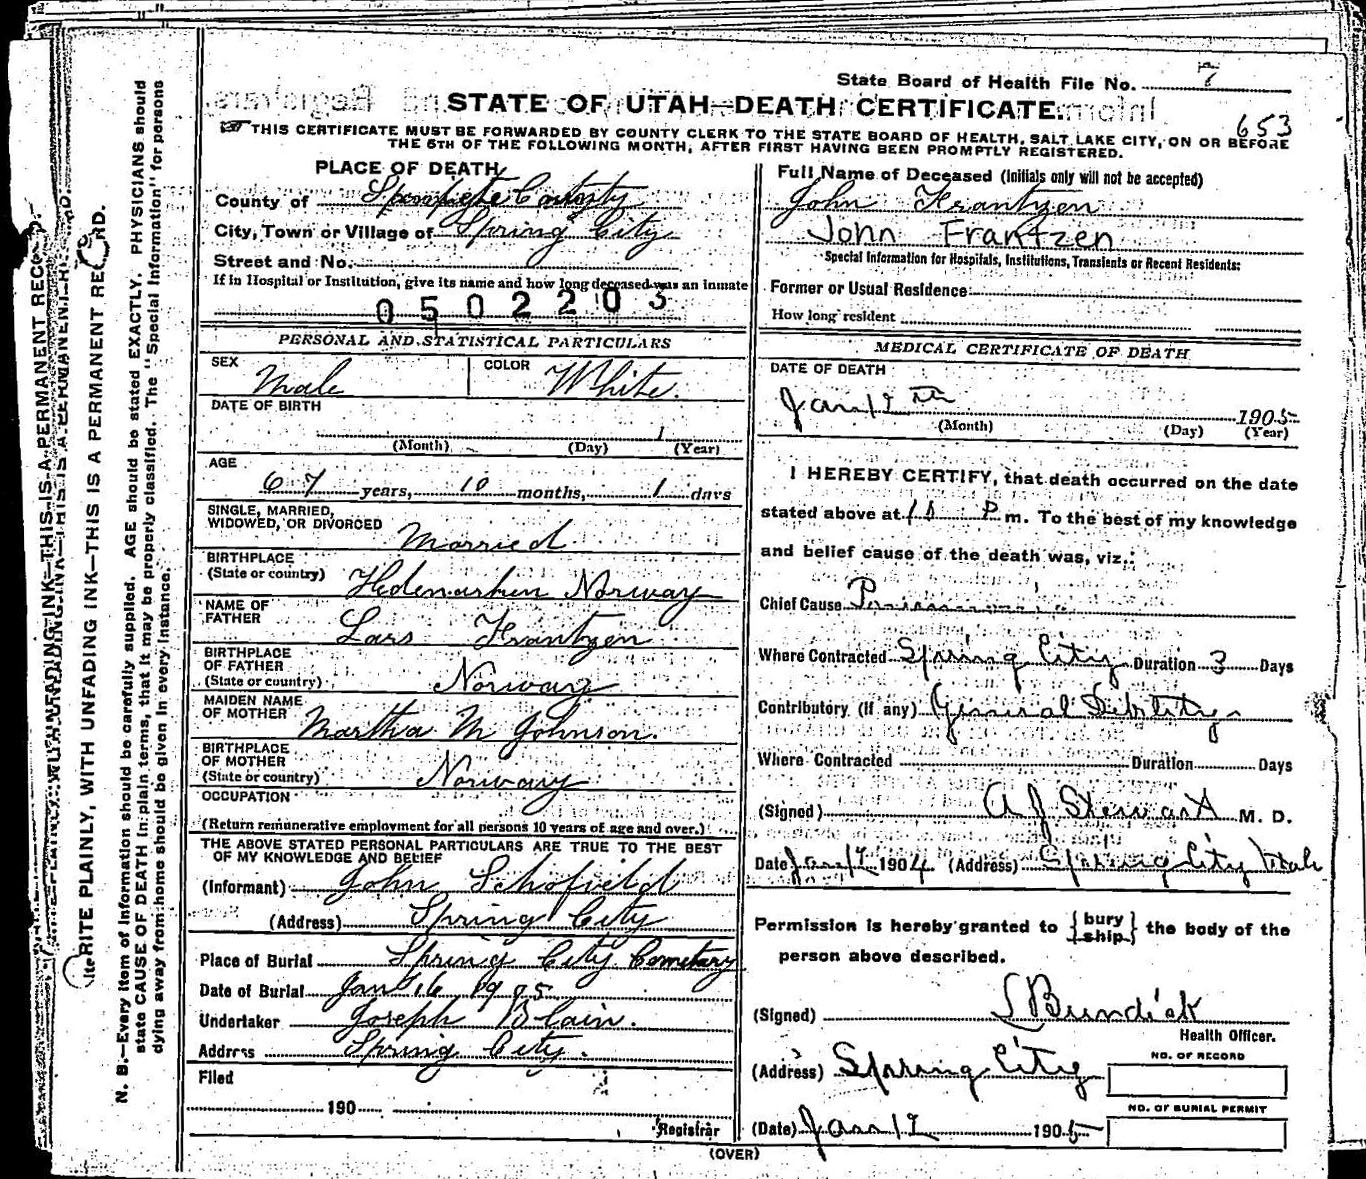 State Board of Health File No. 7
STATE OF UTAH—DEATH CERTIFICATE.
653
THIS CERTIFICATE MUST BE FORWARDED BY COUNTY CLERK TO THE STATE BOARD OF HEALTH, SALT LAKE CITY, ON OR BEFORE
THE 5TH OF THE FOLLOWING MONTH, AFTER FIRST HAVING BEEN PROMPTLY REGISTERED.
PLACE OF DEATH
County of Sanpete County
City, Town or Village of Spring City
Street and No.
If in Hospital or Institution, give its name and how long deceased was an inmate
0502203
PERSONAL AND STATISTICAL PARTICULARS
SEX Male COLOR White.
DATE OF BIRTH
1
(Month) (Day) (Year)
AGE
67 years, 10 months, 1 days
SINGLE, MARRIED,
WIDOWED, OR DIVORCED Married
BIRTHPLACE
(State or country) Norway
NAME OF
FATHER Lars Frantzen
BIRTHPLACE
OF FATHER
(State or country) Norway
MAIDEN NAME
OF MOTHER Martha M Johnson.
BIRTHPLACE
OF MOTHER
(State or country) Norway
OCCUPATION
(Return remunerative employment for all persons 10 years of age and over.)
THE ABOVE STATED PERSONAL PARTICULARS ARE TRUE TO THE BEST
OF MY KNOWLEDGE AND BELIEF
(Informant) John Schofield
(Address) Spring City
Place of Burial Spring City Cemetary
Date of Burial Jan 16 1905
Undertaker Joseph Blain.
Address Spring City.
Filed
190
Registrar
Full Name of Deceased (Initials only will not be accepted)
John Frantzen
John Frantzen
Special Information for Hospitals, Institutions, Transients or Recent Residents:
Former or Usual Residence
How long resident
MEDICAL CERTIFICATE OF DEATH
DATE OF DEATH
Jan 12 th 1905
(Month) (Day) (Year)
I HEREBY CERTIFY, that death occurred on the date
stated above at P m. To the best of my knowledge
and belief cause of the death was, viz.:
Chief Cause
Where Contracted Spring City Duration 3 Days
Contributory (if any) General Debility
Where Contracted Duration Days
(Signed) A J Stewart M. D.
Date Jan 12 1904 (Address) Spring City Utah
Permission is hereby granted to {bury ship} the body of the
person above described.
(Signed) L Bundick
Health Officer.
(Address) Spring City
NO. OF RECORD
NO. OF BURIAL PERMIT
(Date) Jan 12 1905
(OVER)
WRITE PLAINLY, WITH UNFADING INK—THIS IS A PERMANENT RECORD.
N. B.—Every item of information should be carefully supplied. AGE should be stated EXACTLY. PHYSICIANS should
state CAUSE OF DEATH in plain terms, that it may be properly classified. The "Special Information" for persons
dying away from home should be given in every instance.